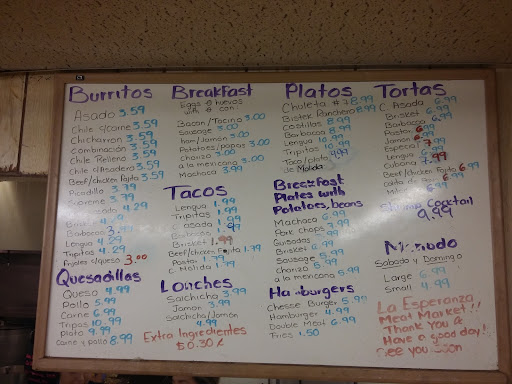 Burritos
Asado 3.59
Chile c/carne 3.59
Chicharron 3.59
Combinación 3.59
Chile Relleno 3.59
Chile c/asadero 3.59
Beef/chicken Fajita 3.59
Picadillo 3.79
Supreme 3.79
4.29
Barbacoa 3.00
Lengua 4.29
Tripitas 4.29
Frijoles c/queso 3.00
Quesadillas
Queso 4.99
Pollo 5.99
Carne 6.99
Tripas 10.99
Plato 9.99
Carne y pollo 8.99
Breakfast
Eggs
Bacon/Tocino 3.00
Sausage 3.00
ham/Jamón 3.00
Potatoes/papas 3.00
Chorizo 3.00
a la mexicana 3.00
Machaca 3.99
Tacos
Lengua 1.99
Tripitas 1.99
C. asada 1.99
Brisket 1.99
Beef/chicken Fajita 1.79
Pastor 1.79
C. Molida 1.79
Lonches
Salchicha 3.99
Jamon 3.99
Salchicha/Jamón
4.99
Extra Ingredientes
$0.30¢
Platos
Chuleta #7 8.99
Bistek Ranchero 8.99
Costillas 8.99
Barbacoa 8.99
Lengua 10.99
Tripitas 10.99
Taco/plato
de Molida
Breakfast
Plates with
Potatoes, beans
Machaca 6.99
Pork Chops
Guisadas
Brisket
Sausage 5.99
Chorizo 5.99
a la mexicana 5.99
Hamburgers
Cheese Burger 5.99
Hamburger 4.99
Double Meat 6.99
Fries 1.50
Tortas
C. Asada 6.99
Brisket 6.99
Barbacoa 6.99
Pastor 6.99
Jamon 6.99
Especial 7.99
Lengua
Cubana 7.99
Beef/chicken Fajita 6.99
Cocktail
9.99
Menudo
Sabado y Domingo
Large 6.99
Small 4.99
La Esperanza
Meat Market!!
Thank You &
Have a good day!
See you Soon